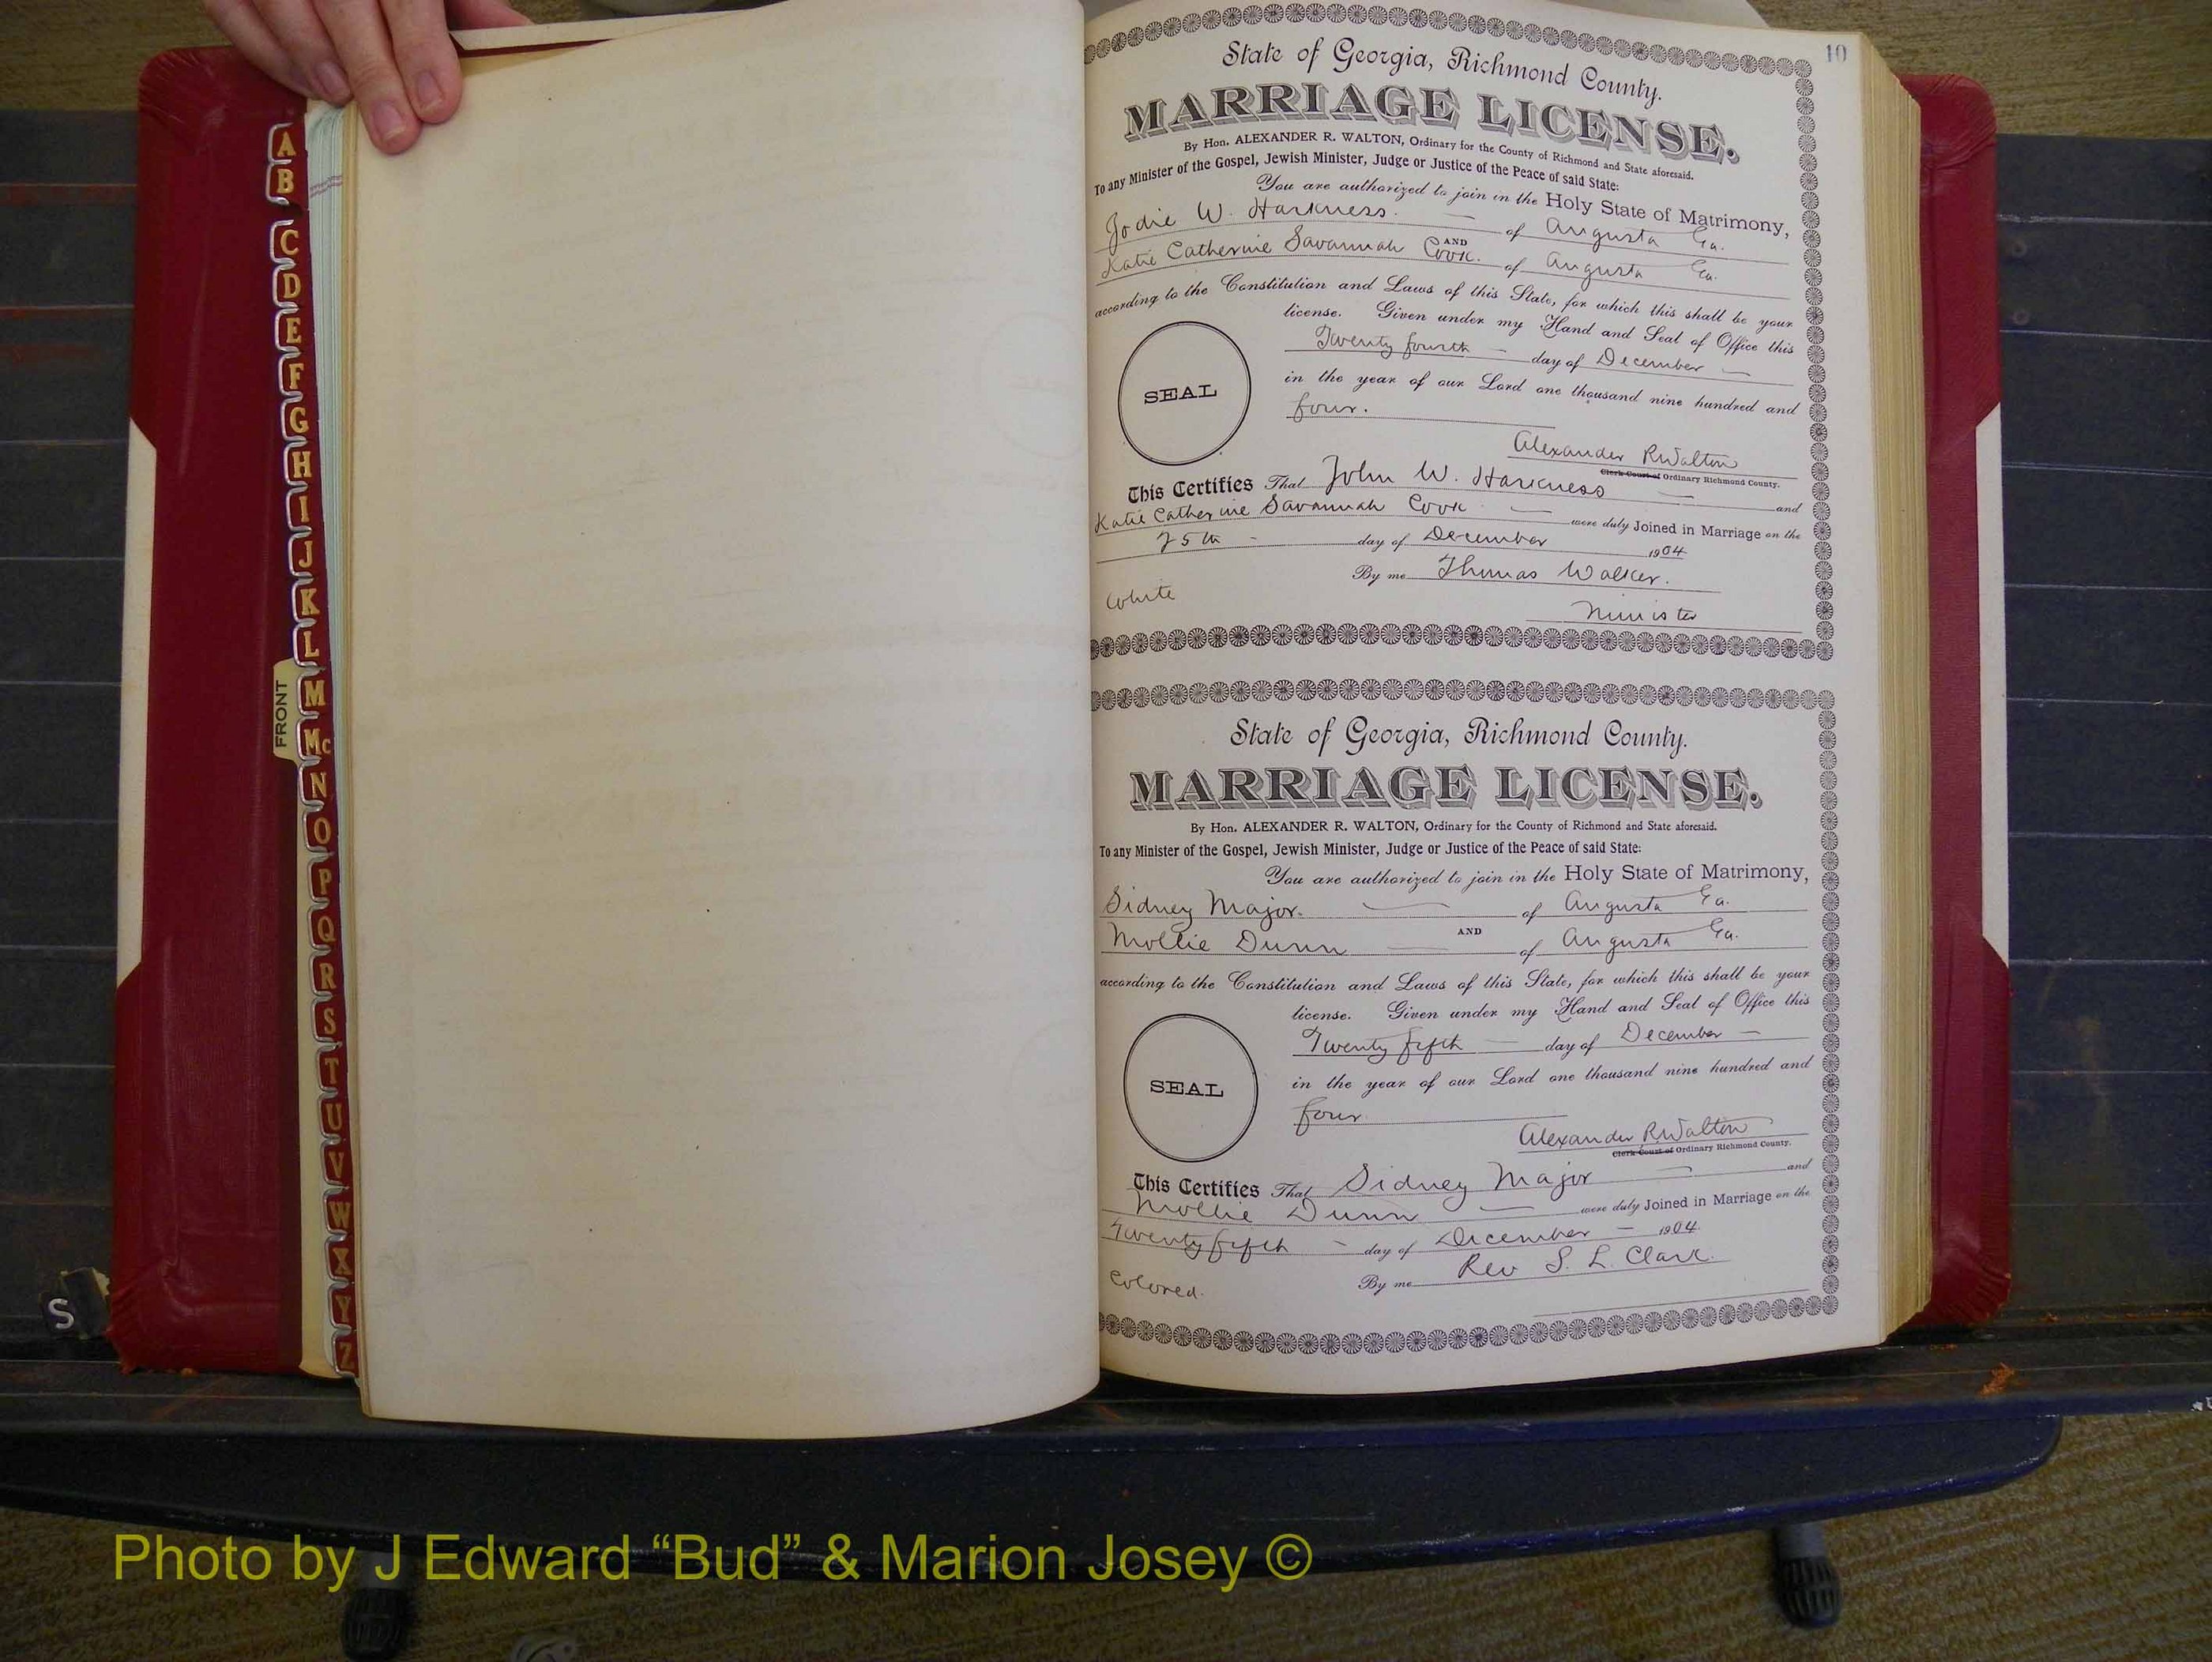 10
State of Georgia, Richmond County.
MARRIAGE LICENSE.
By Hon. ALEXANDER R. WALTON, Ordinary for the County of Richmond and State aforesaid.
To any Minister of the Gospel, Jewish Minister, Judge or Justice of the Peace of said State:
You are authorized to join in the Holy State of Matrimony,
Jodie W. Harkness. of Augusta Ga.
AND
Katie Catherine Savannah Cook. of Augusta Ga.
according to the Constitution and Laws of this State, for which this shall be your
license. Given under my Hand and Seal of Office this
Twenty fourth day of December
in the year of our Lord one thousand nine hundred and
four.
SEAL
Alexander R Walton
Clerk Court of Ordinary Richmond County.
This Certifies That John W. Harkness and
Katie Catherine Savannah Cook were duly Joined in Marriage on the
25th day of December 1904
By me Thomas Walker.
White
Minister
State of Georgia, Richmond County.
MARRIAGE LICENSE.
By Hon. ALEXANDER R. WALTON, Ordinary for the County of Richmond and State aforesaid.
To any Minister of the Gospel, Jewish Minister, Judge or Justice of the Peace of said State:
You are authorized to join in the Holy State of Matrimony,
Sidney Major. of Augusta Ga.
AND
Mollie Dunn of Augusta Ga.
according to the Constitution and Laws of this State, for which this shall be your
license. Given under my Hand and Seal of Office this
Twenty fifth day of December
in the year of our Lord one thousand nine hundred and
four
SEAL
Alexander R Walton
Clerk Court of Ordinary Richmond County.
This Certifies That Sidney Major and
Mollie Dunn were duly Joined in Marriage on the
Twenty fifth day of December 1904.
By me Rev S. L. Clark.
Colored.
A
B
C
D
E
F
G
H
I
J
K
L
M
Mc
N
O
P
Q
R
S
T
U
V
W
X
Y
Z
FRONT
S
Photo by J Edward “Bud” & Marion Josey ©